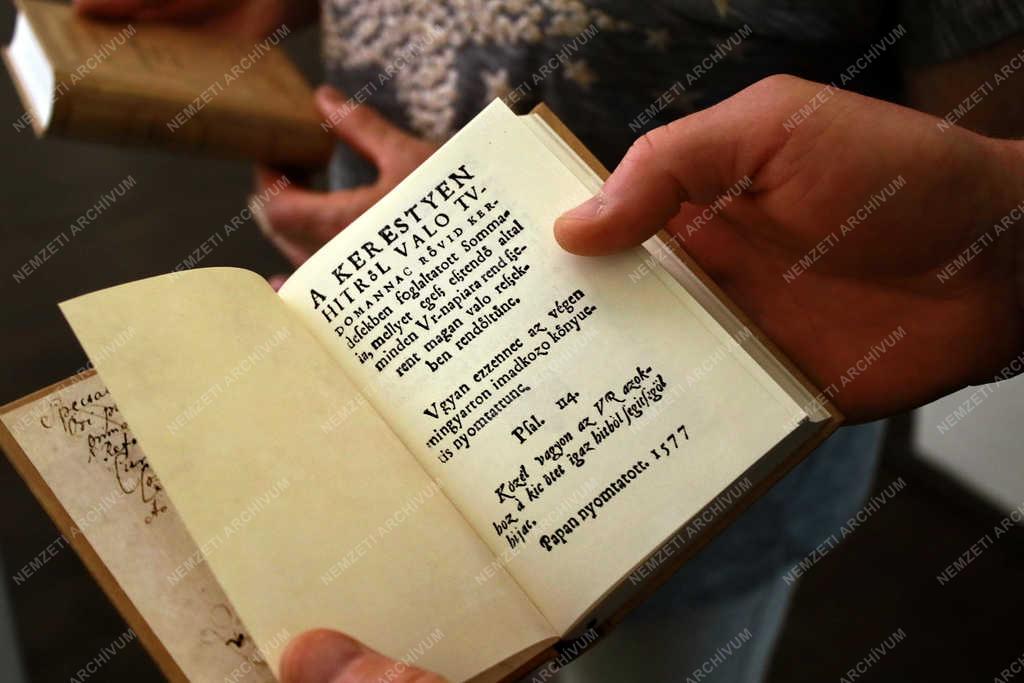 A KERESTYEN
HITRŐL VALO TV-
DOMANNAC RŐVID KER-
desekben foglaltatott Somma-
ia, mellyet egeſz eztendő altal
minden Vr-napiara rend ſze-
rent magan valo reſzek-
ben rendőltűnc.
Vgyan ezzennec az végen
mingyarton imadkozo kőnyue-
tis nyomtattunc.
Pſal. 114.
Kőzel vagyon az VR azok-
hoz a kic őtet igaz hitből ſegitſégől
hijac.
Papan nyomtatott. 1577
NEMZETI ARCHÍVUM